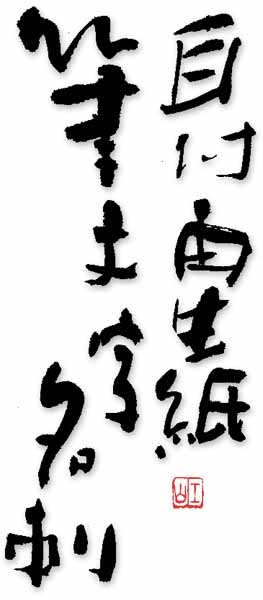 自付由生紙
筆文字名刺